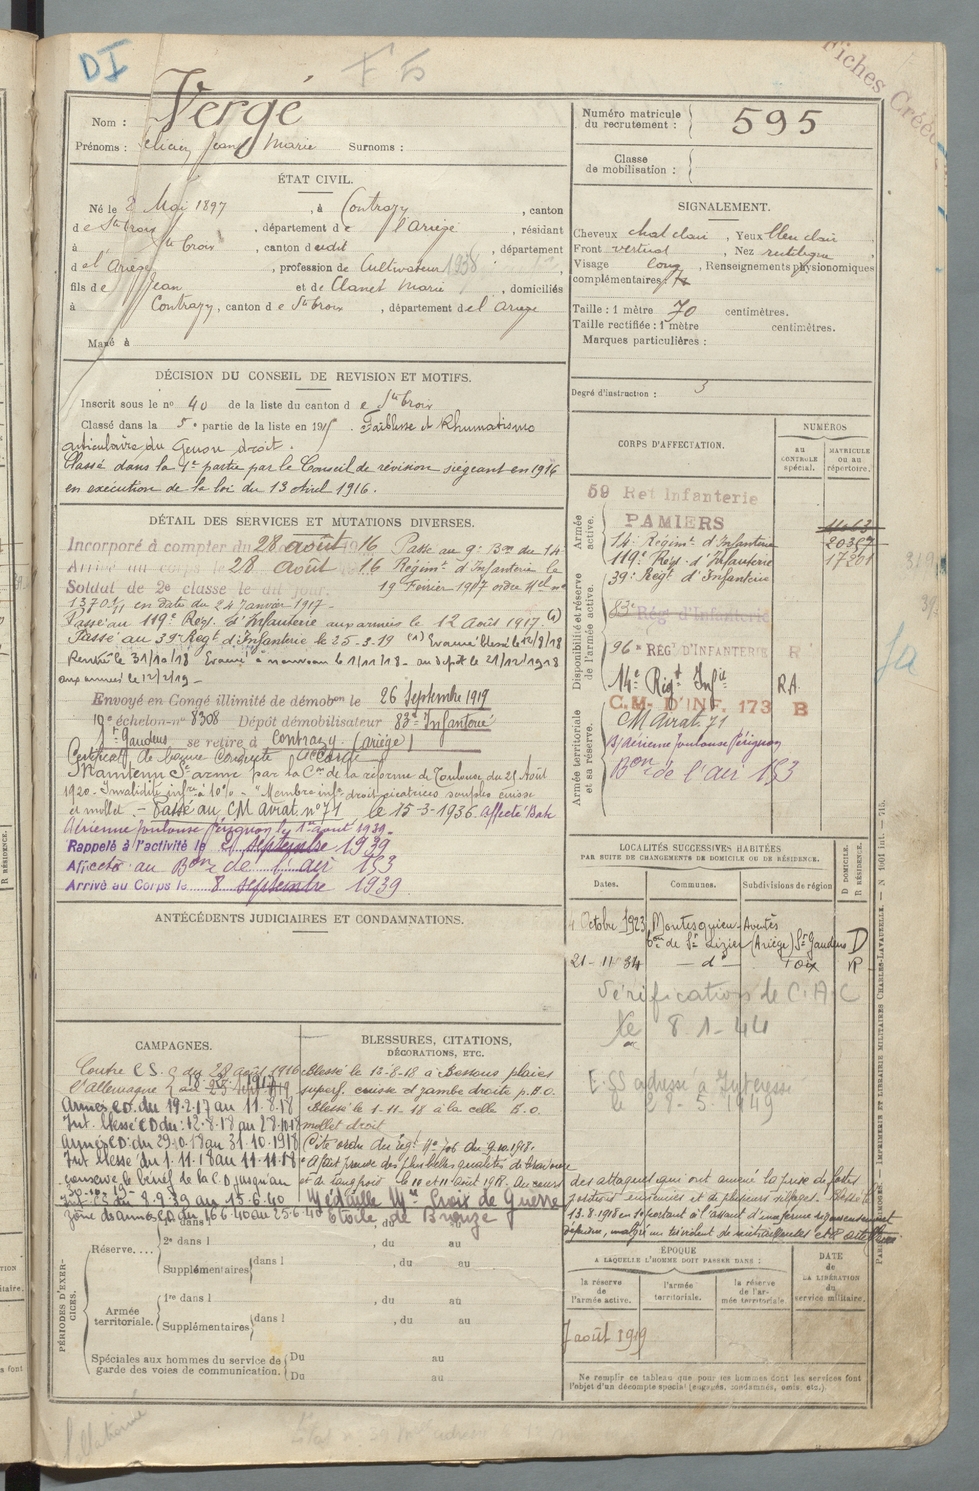 DI
Fiches Créées
Nom : Vergé
Prénoms : Jean Marie Surnoms :
Numéro matricule du recrutement : 595
Classe de mobilisation :
ÉTAT CIVIL.
Né le 2 Mai 1897, à Contrazy, canton
de Ste Croix, département de l'ariège, résidant
à Ste Croix, canton dudit, département
de l'Ariège, profession de Cultivateur 1938
fils de Jean et de Clanet Marie, domiciliés
à Contrazy, canton de Ste Croix, département de l'ariège
Marié à
SIGNALEMENT.
Cheveux chat clair, Yeux bleu clair
Front vertical, Nez rectiligne
Visage long, Renseignements physionomiques
complémentaires :
Taille : 1 mètre 70 centimètres.
Taille rectifiée : 1 mètre centimètres.
Marques particulières :
Degré d'instruction : 3
DÉCISION DU CONSEIL DE REVISION ET MOTIFS.
Inscrit sous le no 40 de la liste du canton de Ste Croix
Classé dans la 5e partie de la liste en 191 . Faiblesse et Rhumatisme
articulaire du Genou droit.
Classé dans la 1re partie par le Conseil de révision siégeant en 1916
en exécution de la loi du 13 Avril 1916.
CORPS D'AFFECTATION.
NUMÉROS
AU CONTRÔLE spécial.
MATRICULE ou au répertoire.
Armée active.
59 Ret Infanterie
PAMIERS
14e Régimt d'Infanterie 20357
119e Régt d'Infanterie 17201
39e Regt d'Infanterie
Disponibilité et réserve de l'armée active.
83e Régt d'Infanterie
96e RÉGt D'INFANTERIE R
14e Regt Infie R.A.
C.M. D'INF. 173 B
Armée territoriale et sa réserve.
CM Aviat. 71
B/ Aérienne Toulouse Pérignon
Bon de l'air 153
DÉTAIL DES SERVICES ET MUTATIONS DIVERSES.
Incorporé à compter du 28 août 1916 Passé au 9e Bon du 14
Arrivé au corps le 28 Août 16 Régimt d'Infanterie le
Soldat de 2e classe le dit jour. 19 Février 1917 ordre
en date du 24 Janvier 1917.
Passé au 119e Rég. d'Infanterie aux armées le 12 Août 1917.
Passé au 39e Regt d'Infanterie le 25-3-19 Evacué blessé le 12/8/18
Rentré le 31/10/18 Evacué à nouveau le 1/11/18 - au dépôt le 21/12/1918
aux armées le 12/2/19 -
Envoyé en Congé illimité de démobon le 26 Septembre 1919
échelon - no 8308 Dépôt démobilisateur 83e Infanterie
St Gaudens se retire à Contrazy (Ariège)
Certificat de bonne conduite Accordé
Maintenu St armé par la Con de la réforme de Toulouse du 21 Août
1920. Invalidité infre à 10% - "Membre infr droit cicatrices souples cuisse
et mollet. - Passé au CM aviat. no 71 le 15-3-1936. Affecté Base
Aérienne Toulouse Pérignon le 1er août 1939.
Rappelé à l'activité le 2 septembre 1939
Affecté au Bon de l'air 153
Arrivé au Corps le 8 septembre 1939
ANTÉCÉDENTS JUDICIAIRES ET CONDAMNATIONS.
LOCALITÉS SUCCESSIVES HABITÉES
PAR SUITE DE CHANGEMENTS DE DOMICILE OU DE RÉSIDENCE.
Dates.
Communes.
Subdivisions de région
D DOMICILE.
R RÉSIDENCE.
Octobre 1923 Montesquieu-Avantès
de St Lizier (Ariège) St Gaudens D
21-11-34 - do - Foix
Vérification de C.A.C
8-1-44
adressé à Intéressé
le 28-5-1949
CAMPAGNES.
Contre C.S. du 28 août 1916
l'Allemagne
Armées CD. du 19.2.17 au 11.8.18
Int. blessé CD du: 12.8.18 au 28.10.18
Armées CD: du 29.10.18 au 31.10.1918
Int blessé du 1.11.18 au 11.11.18
conserve le bénéf de la C.D jusqu'au
du 8.9.39 au 15.6.40
Zône des armées CD du 16.6.40 au 25.6.40
BLESSURES, CITATIONS,
DÉCORATIONS, ETC.
Blessé le 13-8-18 à Bossous plaies
superf. cuisse et jambe droite p.B.O.
Blessé le 1-11-18 à la celle B.O.
mollet droit
Cité ordre du Régt No 706 du 9.10.1918.
A fait preuve des plus belles qualités de bravoure
et de sangfroid le 10 et 11 août 1918. Au cours
des attaques qui ont amené la prise de fortes
positions ennemies et de plusieurs villages. Blessé le
13.8.1918 en se portant à l'assaut d'une ferme
défendue, malgré un tir violent de mitrailleuses et d'artillerie
Médaille Mre Croix de Guerre
Étoile de Bronze
PÉRIODES D'EXERCICES.
Réserve....
1re dans l , du au
2e dans l , du au
Supplémentaires dans l , du au
Armée territoriale.
1re dans l , du au
Supplémentaires dans l , du au
Spéciales aux hommes du service de garde des voies de communication.
Du au
Du au
ÉPOQUE
A LAQUELLE L'HOMME DOIT PASSER DANS :
la réserve de l'armée active.
l'armée territoriale.
la réserve de l'armée territoriale.
DATE de LA LIBÉRATION du service militaire.
août 1919
Ne remplir ce tableau que pour les hommes dont les services font
l'objet d'un décompte spécial (engagés, condamnés, omis, etc.).
PARIS-LIMOGES. — IMPRIMERIE ET LIBRAIRIE MILITAIRES CHARLES-LAVAUZELLE.